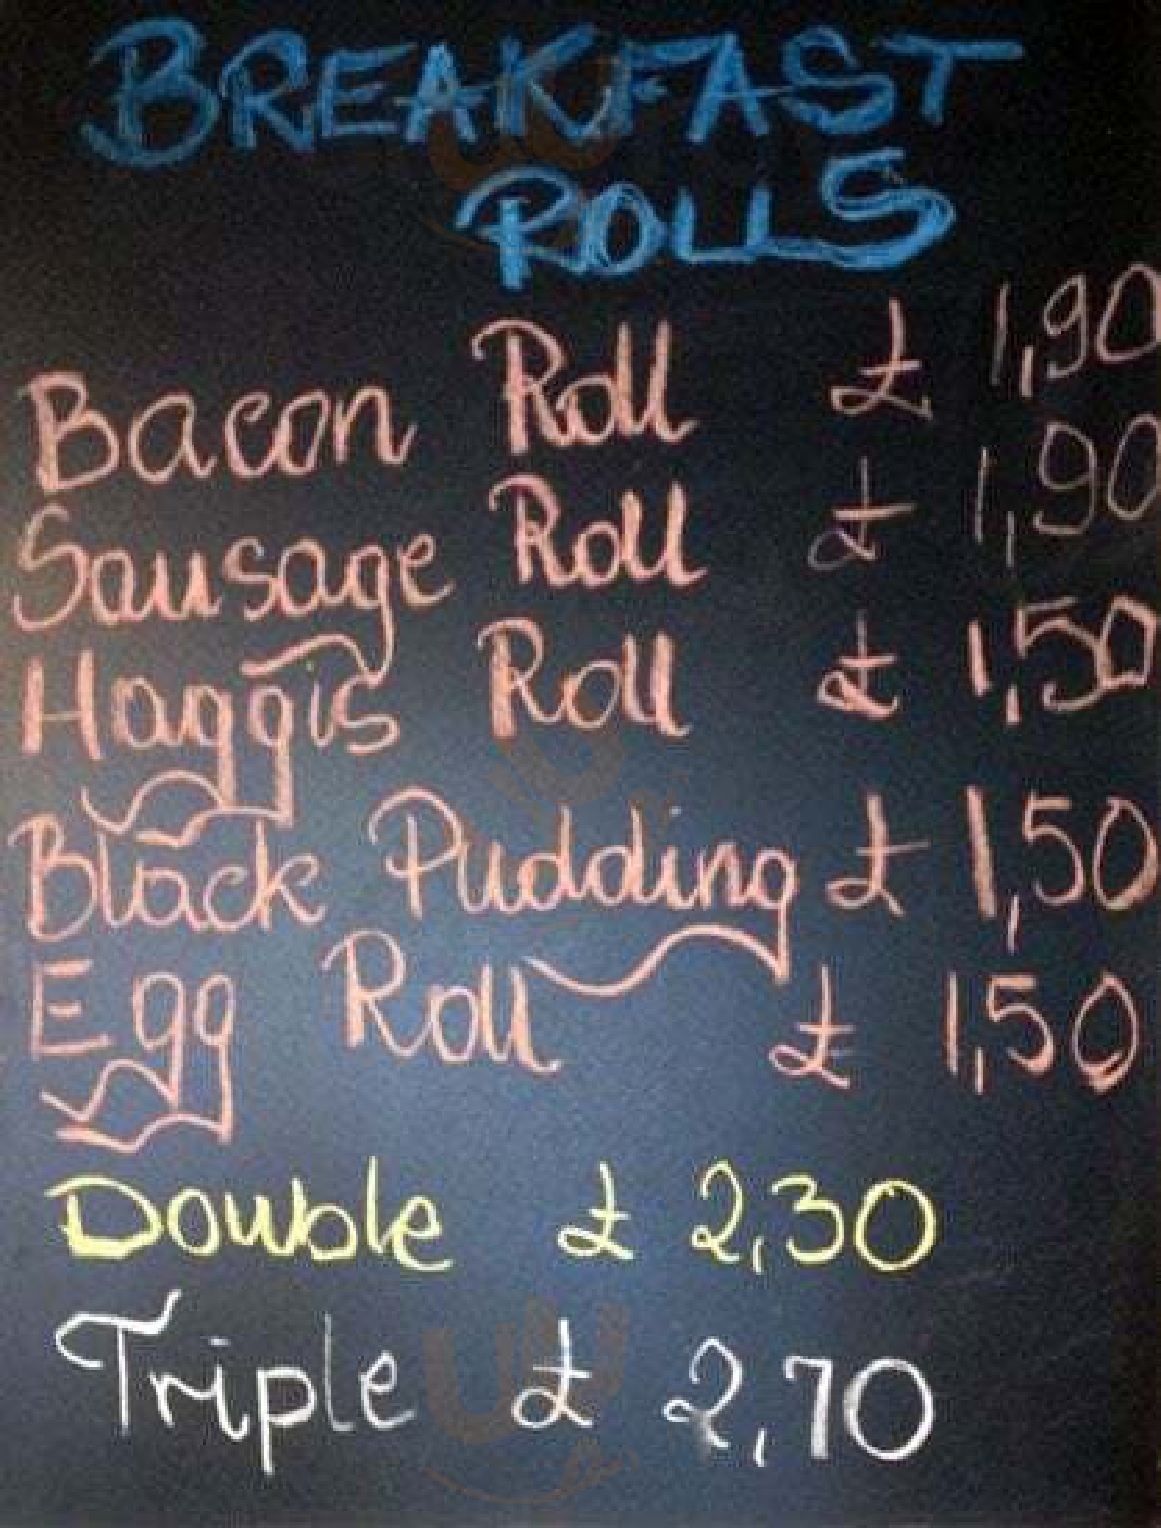 BREAKFAST
ROLLS
Bacon Roll £ 1,90
Sausage Roll £ 1,90
Haggis Roll £ 1,50
Black Pudding £ 1,50
Egg Roll £ 1,50
Double £ 2,30
Triple £ 2,70